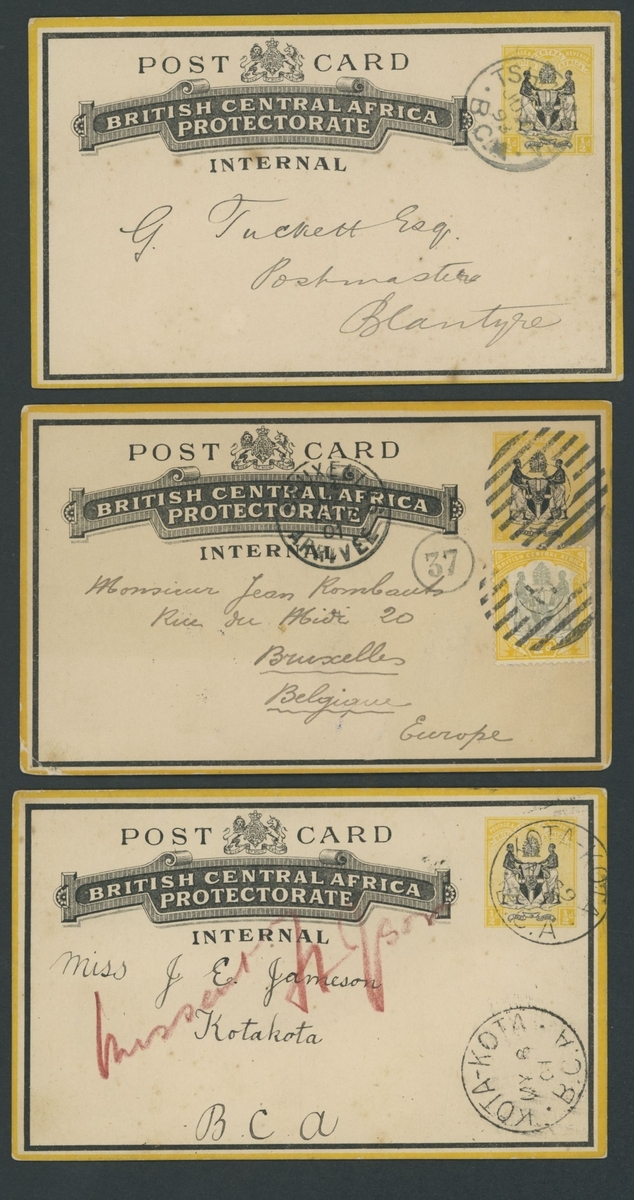 POST CARD
BRITISH CENTRAL AFRICA
PROTECTORATE
INTERNAL
B.C.A
G. Tuckett Esq.
Postmaster
Blantyre
POST CARD
BRITISH CENTRAL AFRICA
PROTECTORATE
INTERNAL
ARRIVEE
37
BRITISH CENTRAL AFRICA
Monsieur Jean Rombauts
Rue du Midi 20
Bruxelles
Belgique
Europe
POST CARD
BRITISH CENTRAL AFRICA
PROTECTORATE
INTERNAL
KOTA-KOTA
Miss J E. Jameson
Kotakota
B C A
missent
KOTA-KOTA . B.C.A .